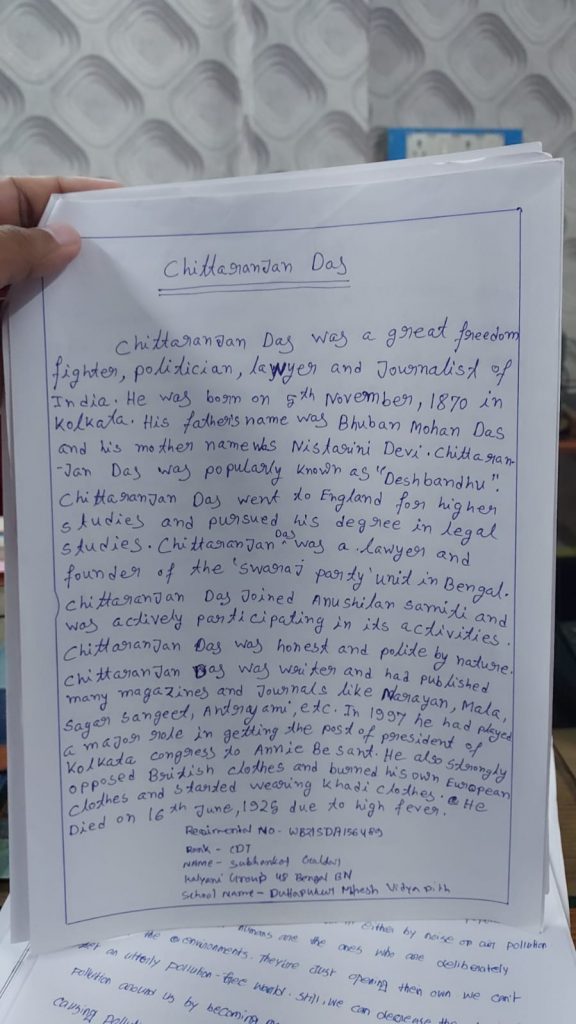 Chittaranjan Das
Chittaranjan Das was a great freedom
fighter, politician, lawyer and Journalist of
India. He was born on 5th November, 1870 in
Kolkata. His father's name was Bhuban Mohan Das
and his mother name was Nistarini Devi. Chittaran-
-Jan Das was popularly known as "Deshbandhu".
Chittaranjan Das went to England for higher
studies and pursued his degree in legal
studies. Chittaranjan Das was a lawyer and
founder of the 'swaraj party' unit in Bengal.
Chittaranjan Das Joined Anushilan samiti and
was actively participating in its activities.
Chittaranjan Das was honest and polite by nature.
Chittaranjan Das was writer and had published
many magazines and Journals like Narayan, Mala,
Sagar Sangeet, Antrayami, etc. In 1997 he had played
a major role in getting the post of president of
Kolkata congress to Annie Besant. He also strongly
opposed British clothes and burned his own European
clothes and started wearing khadi clothes. He
Died on 16th June, 1925 due to high fever.
Regimental No- WB21SDA156489
Rank - CDT
Name - Subhankar
Kalyani Group 48 Bengal BN
School Name - Duttapukur Mahesh Vidya pith
either by noise or air pollution
humans are the ones who are deliberately
the environments. They're Just opening their own we can't
get an utterly pollution-free world. Still, we can decrease the
pollution around us by becoming
causing